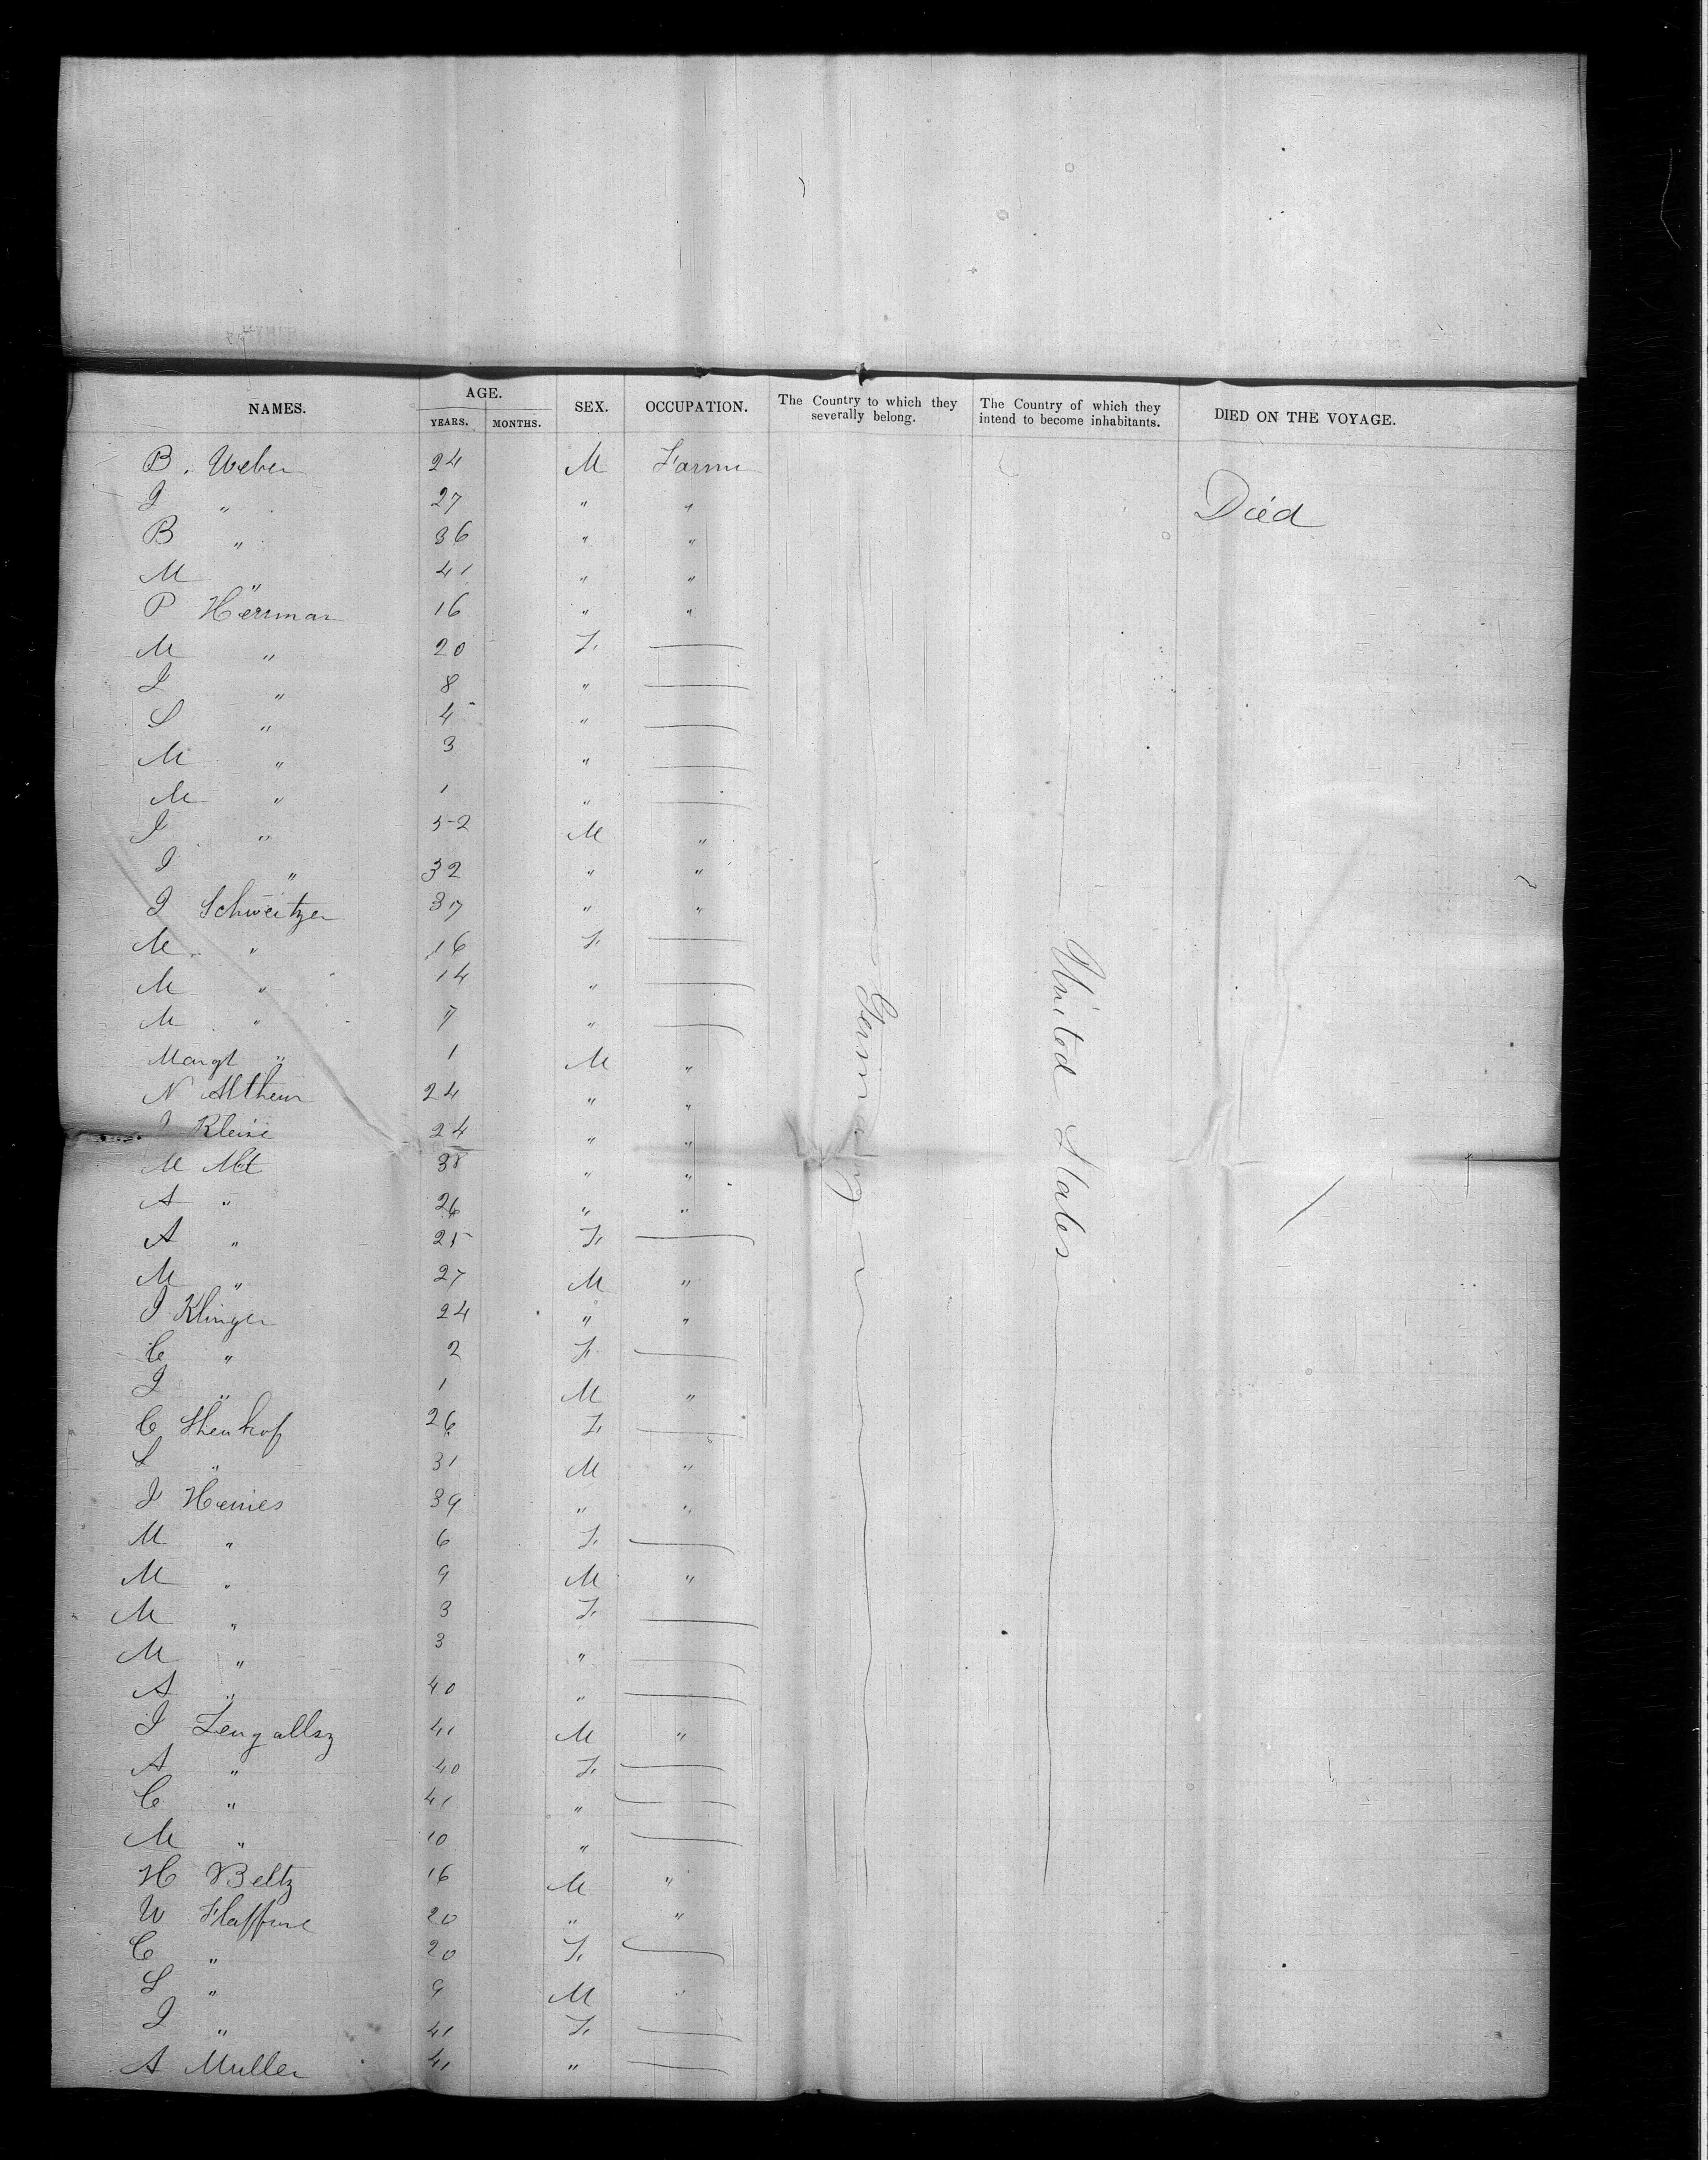 NAMES. AGE. YEARS. MONTHS. SEX. OCCUPATION. The Country to which they severally belong. The Country of which they intend to become inhabitants. DIED ON THE VOYAGE.
B. Weber 24 M Farmr
J " 27 " " Died
B " 36 " "
M " 41 " "
P Herrman 16 " "
M " 20 F. —
J " 8 " —
S " 4 " —
M " 3 " —
M " 1 " —
J " 52 M "
J " 32 " "
J Schweitzer 37 " "
M " 16 F. —
M " 14 " —
M " 7 " —
Margt " 1 M "
N 24 " "
J 24 " "
M Alt 38 " "
A " 26 " "
A " 25 F. —
M " 27 M "
J Klinger 24 " "
C " 2 F. —
J " 1 M "
C 26 F. —
S " 31 M "
J 39 " "
M " 6 F. —
M " 9 M "
M " 3 F. —
M " 3 " —
A " 40 " —
J 41 M "
A " 40 F. —
C " 41 " —
M " 10 " —
H Beltz 16 M "
W 20 " "
C " 20 F. —
S " 9 M "
J " 41 F. —
A Muller 41 " —
Germany
United States